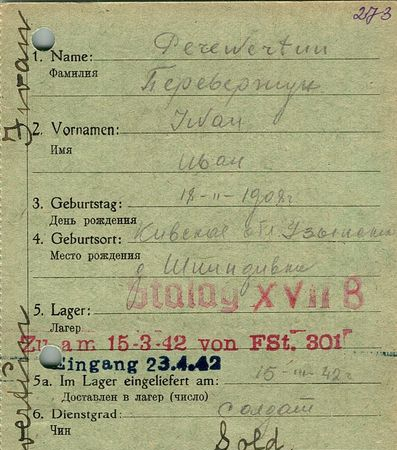 273
1. Name: Perewertun
Фамилия Перевертун
2. Vornamen: Iwan
Имя
Иван
3. Geburtstag: 18-II-1908г
День рождения
4. Geburtsort: Киевская обл.
Место рождения
Stalag XVII B
5. Lager:
Лагерь
Zu am 15-3-42 von FSt. 301
Eingang 23.4.42
5a. Im Lager eingeliefert am: 15-III-42г
Доставлен в лагерь (число)
6. Dienstgrad: солдат
Чин
Sold.
Iwan